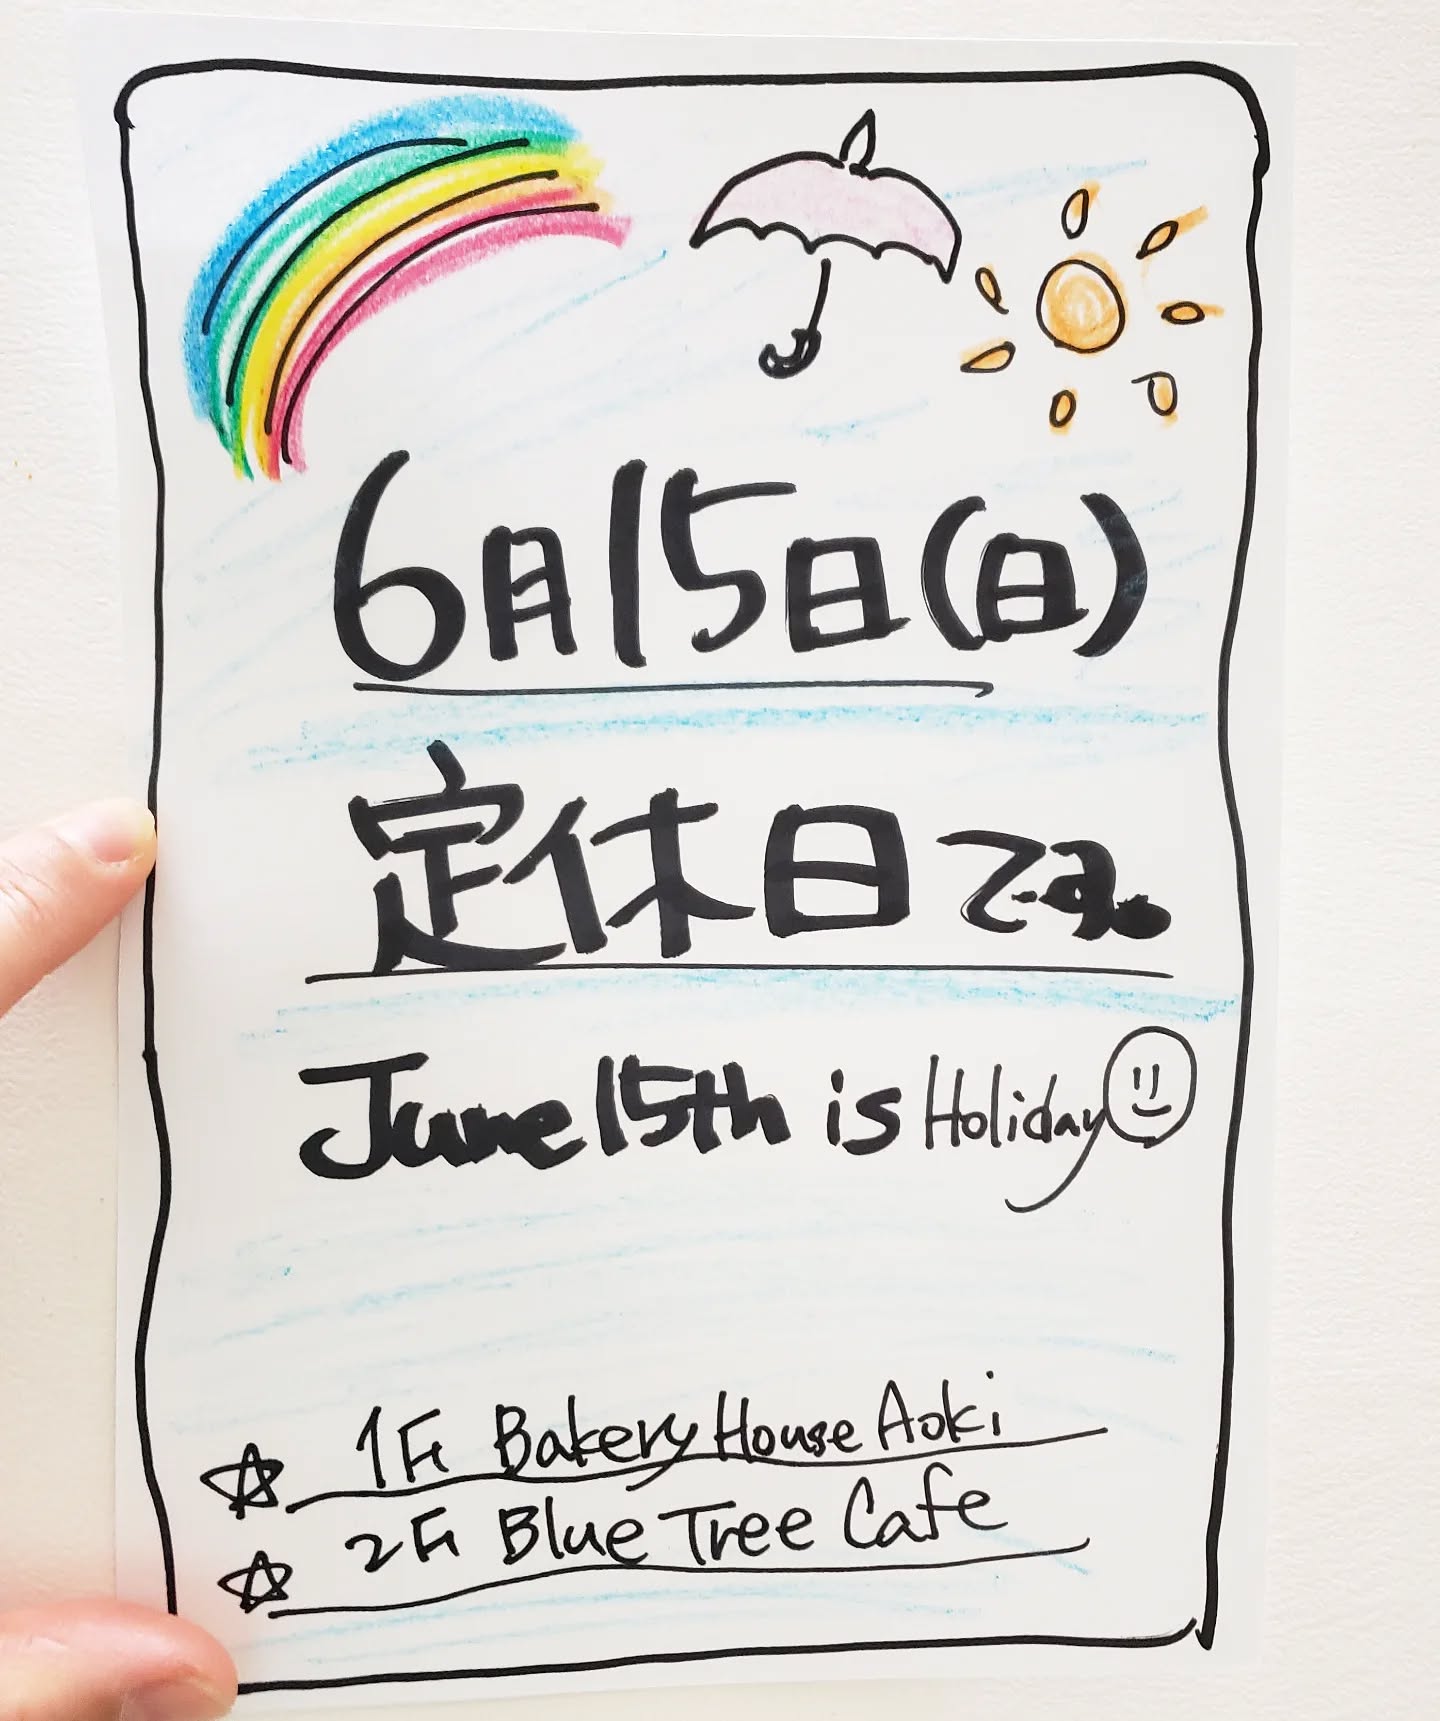 6月15日(日)
定休日です。
June 15th is Holiday
1F Bakery House Aoki
2F Blue Tree Cafe